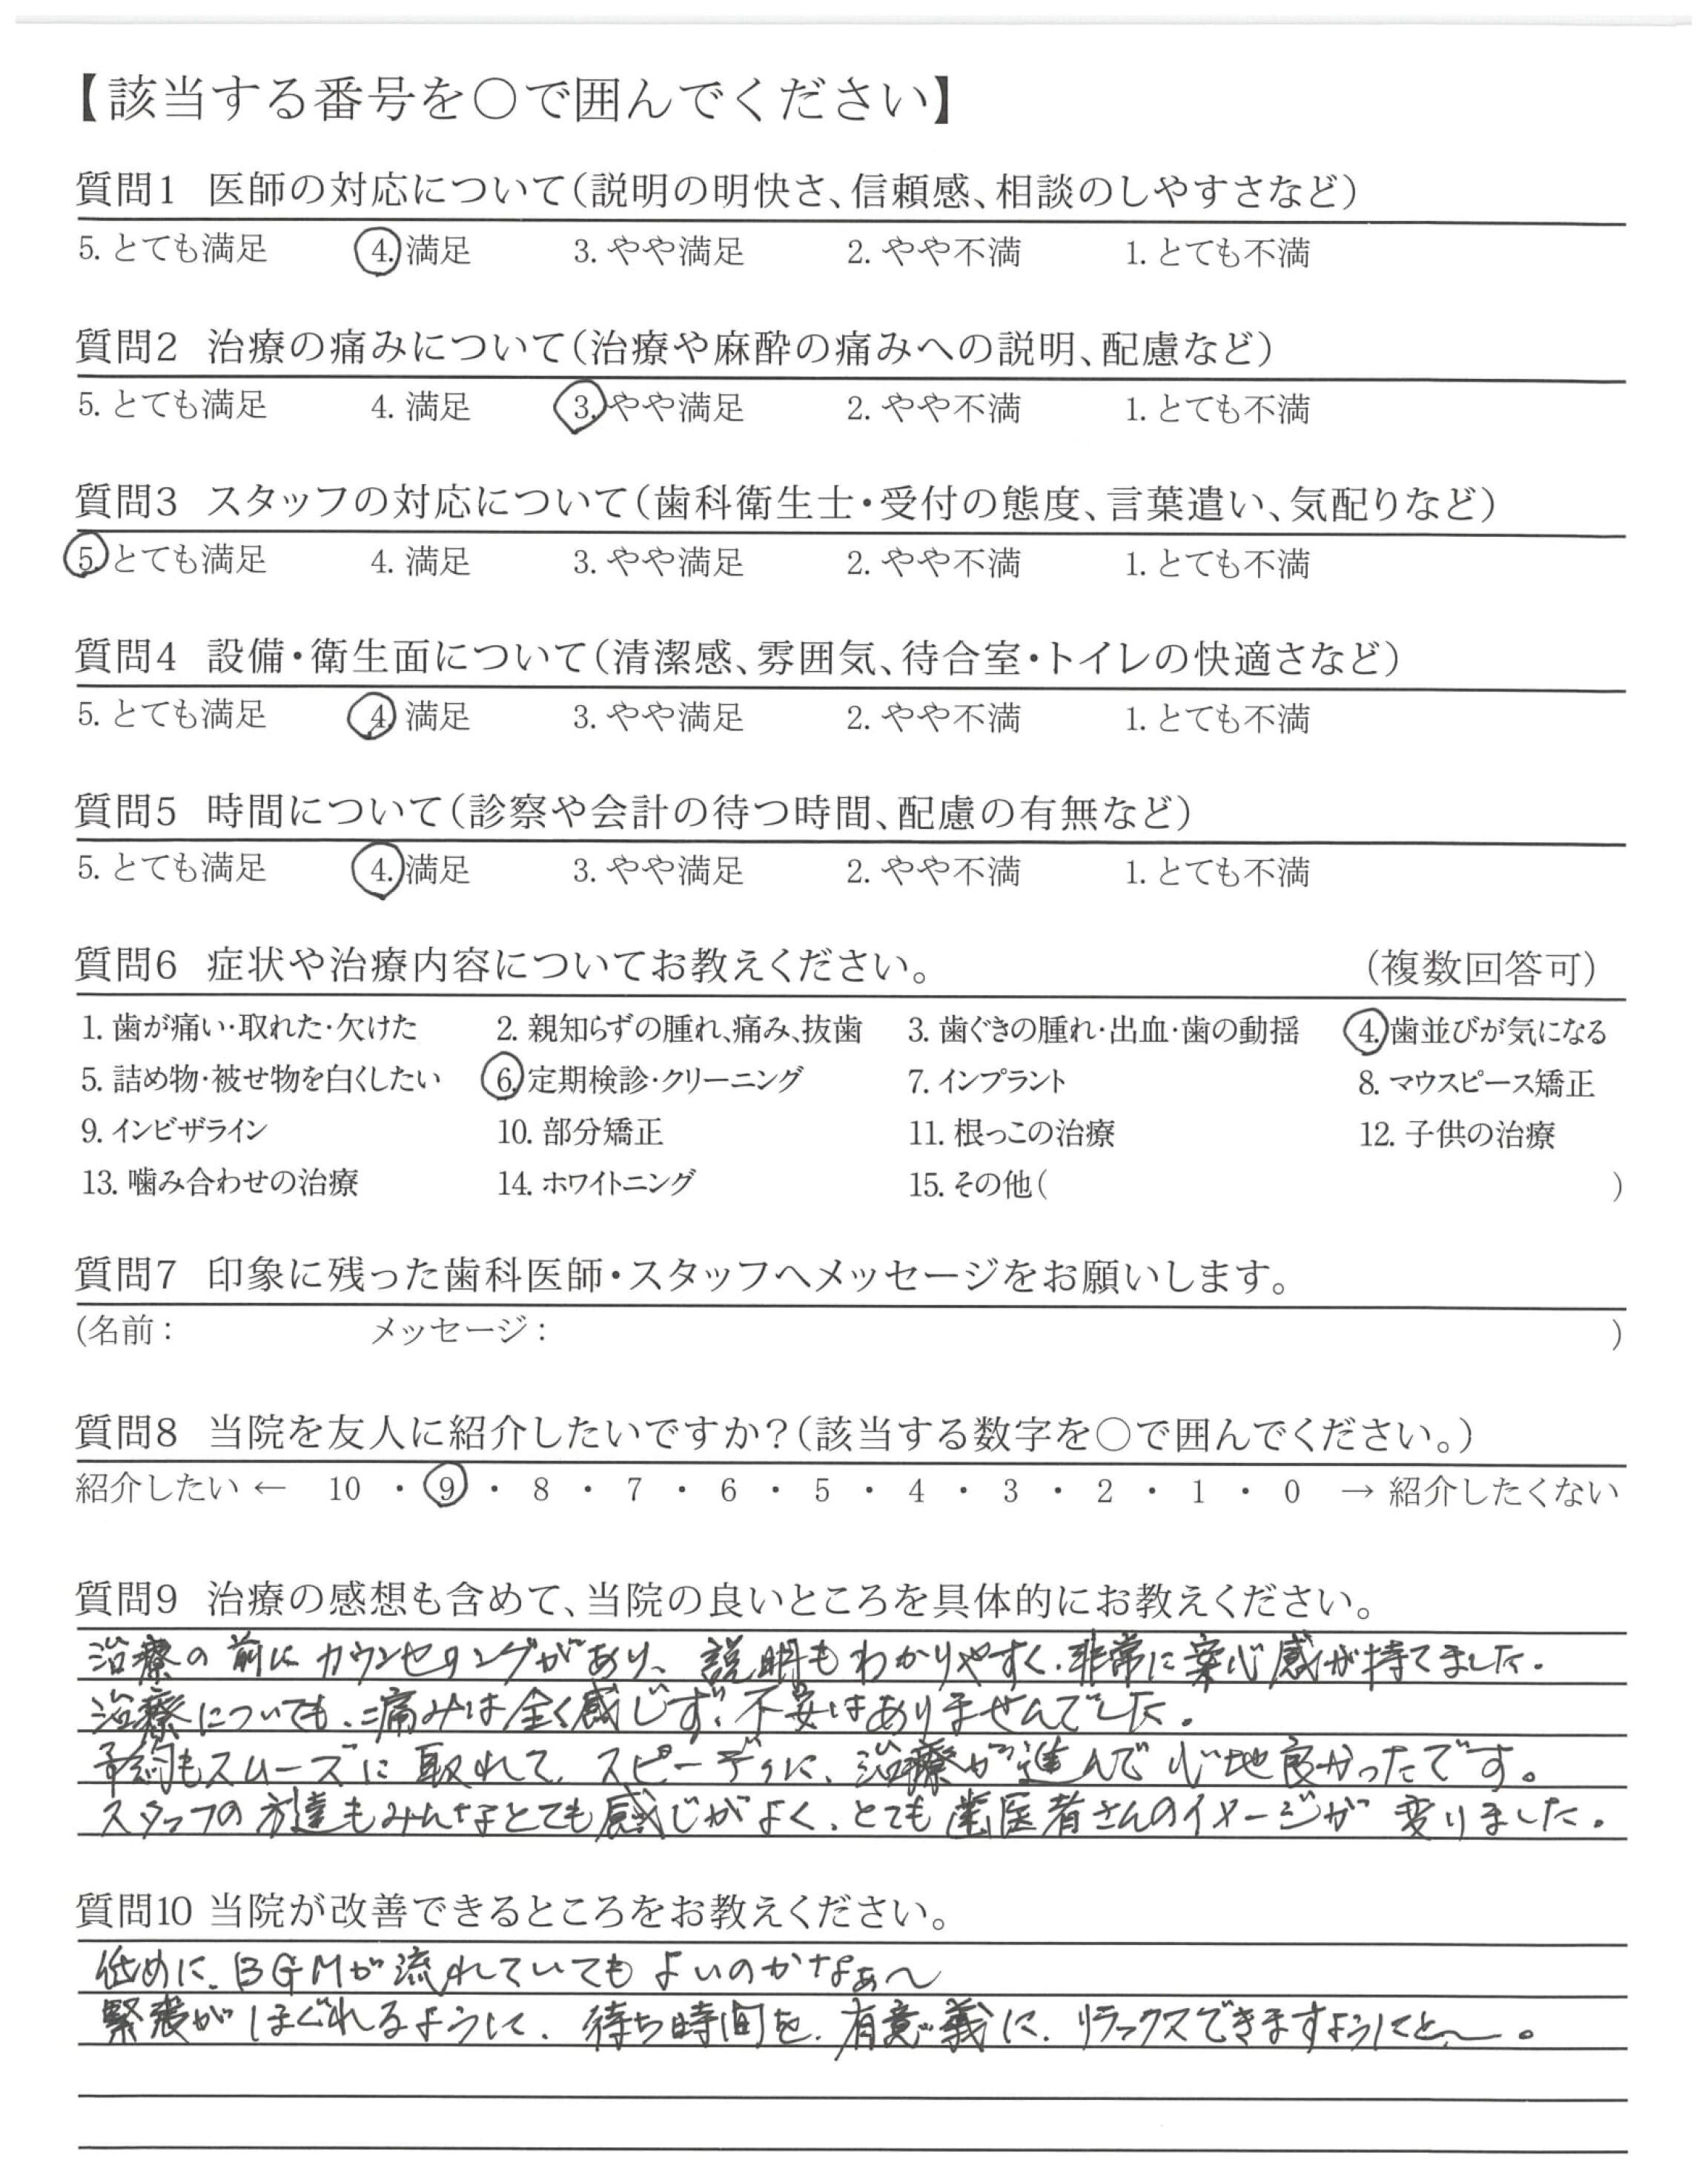 【該当する番号を○で囲んでください】
質問1 医師の対応について(説明の明快さ、信頼感、相談のしやすさなど)
5. とても満足 4. 満足 3. やや満足 2. やや不満 1. とても不満
質問2 治療の痛みについて(治療や麻酔の痛みへの説明、配慮など)
5. とても満足 4. 満足 3. やや満足 2. やや不満 1. とても不満
質問3 スタッフの対応について(歯科衛生士・受付の態度、言葉遣い、気配りなど)
5. とても満足 4. 満足 3. やや満足 2. やや不満 1. とても不満
質問4 設備・衛生面について(清潔感、雰囲気、待合室・トイレの快適さなど)
5. とても満足 4. 満足 3. やや満足 2. やや不満 1. とても不満
質問5 時間について(診察や会計の待つ時間、配慮の有無など)
5. とても満足 4. 満足 3. やや満足 2. やや不満 1. とても不満
質問6 症状や治療内容についてお教えください。 (複数回答可)
1. 歯が痛い・取れた・欠けた 2. 親知らずの腫れ、痛み、抜歯 3. 歯ぐきの腫れ・出血・歯の動揺 4. 歯並びが気になる
5. 詰め物・被せ物を白くしたい 6. 定期検診・クリーニング 7. インプラント 8. マウスピース矯正
9. インビザライン 10. 部分矯正 11. 根っこの治療 12. 子供の治療
13. 噛み合わせの治療 14. ホワイトニング 15. その他( )
質問7 印象に残った歯科医師・スタッフへメッセージをお願いします。
(名前: メッセージ: )
質問8 当院を友人に紹介したいですか?(該当する数字を○で囲んでください。)
紹介したい ← 10 ・ 9 ・ 8 ・ 7 ・ 6 ・ 5 ・ 4 ・ 3 ・ 2 ・ 1 ・ 0 → 紹介したくない
質問9 治療の感想も含めて、当院の良いところを具体的にお教えください。
治療の前にカウンセリングがあり、説明もわかりやすく、非常に安心感が持てました。
治療についても、痛みは全く感じず、不安はありませんでした。
予約もスムーズに取れて、スピーディに、治療が進んで心地良かったです。
スタッフの方達もみんなとても感じがよく、とても歯医者さんのイメージが変りました。
質問10 当院が改善できるところをお教えください。
低めに、BGMが流れていてもよいのかなぁ〜
緊張がほぐれるように、待ち時間を、有意義に、リラックスできますようにと〜。